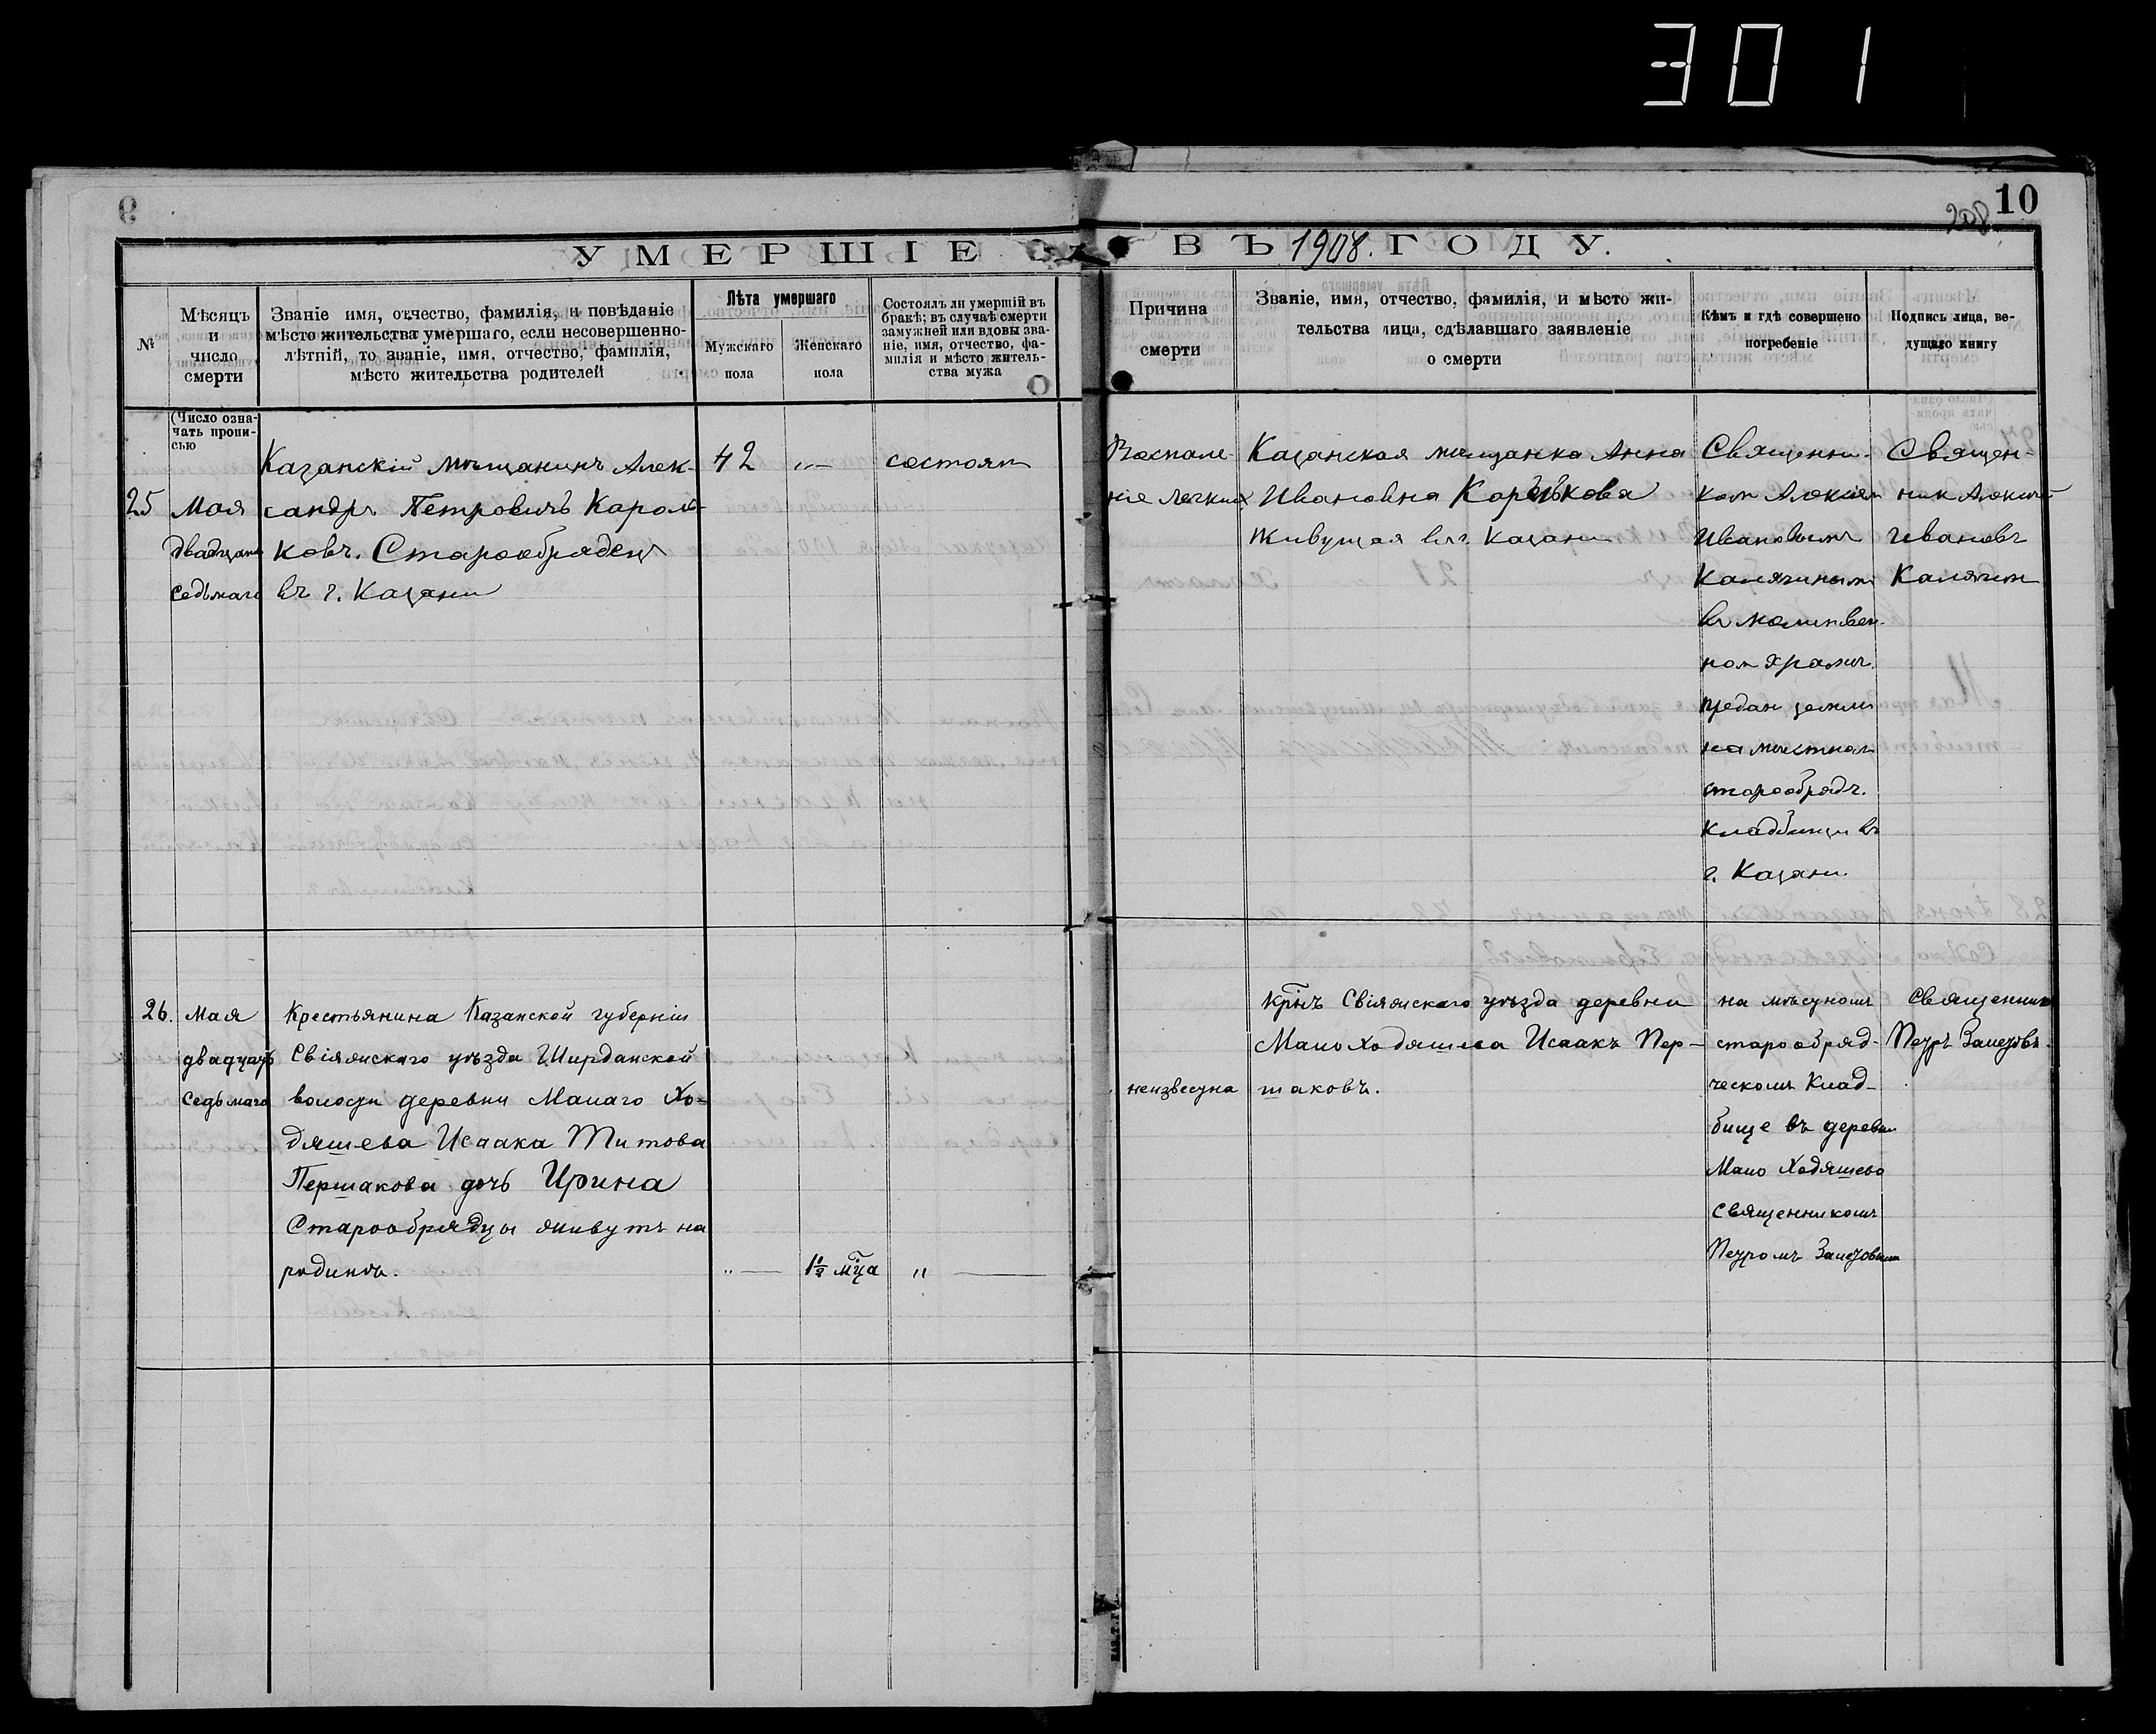 301
10
208
УМЕРШІЕ ВЪ 1908. ГОДУ.
№
Мѣсяцъ
и
число
смерти
Званіе имя, отчество, фамилія, и повѣданіе
мѣсто жительства умершаго, если несовершенно-
лѣтній, то званіе, имя, отчество, фамилія,
мѣсто жительства родителей
Лѣта умершаго
Мужскаго
пола
Женскаго
пола
Состоялъ ли умершій въ
бракѣ; въ случаѣ смерти
замужней или вдовы зва-
ніе, имя, отчество, фа-
милія и мѣсто житель-
ства мужа
Причина
смерти
Званіе, имя, отчество, фамилія, и мѣсто жи-
тельства лица, сдѣлавшаго заявленіе
о смерти
Кѣмъ и гдѣ совершено
погребеніе
Подпись лица, ве-
дущаго книгу
(Число озна-
чать пропи-
сью
25
Мая
двадцать
седьмаго
Казанскій мѣщанинъ Алек-
сандръ Петровичъ Король-
ковъ. Старообрядецъ
въ г. Казани
42
"—
состоял
Воспале-
ніе легких
Казанская мѣщанка Анна
Ивановна Королькова
живущая въ г. Казани
Священни-
ком Алексіем
Ивановымъ
Калягиным
въ молитвен-
ном храмѣ.
предан земли
на мѣстном
старообрядч.
кладбищи въ
г. Казани.
Священ-
ник Алексий
Ивановъ
Калягин
26.
Мая
двадцать
седьмаго
Крестьянина Казанской губерніи
Свіяжскаго уѣзда Ширданской
волости деревни Малаго Хо-
дяшева Исаака Титова
Першакова дочь Ирина
Старообрядцы живутъ на
родинѣ.
" —
1½ мца
" —
неизвестна
Крнъ Свіяжскаго уѣзда деревни
Мало Ходяшева Исаакъ Пер-
шаковъ.
на мѣстномъ
старообряд-
ческомъ Клад-
бище въ деревни
Мало Ходяшева
священникомъ
Петромъ Залетовым
Священникъ
Петръ Залетовъ.